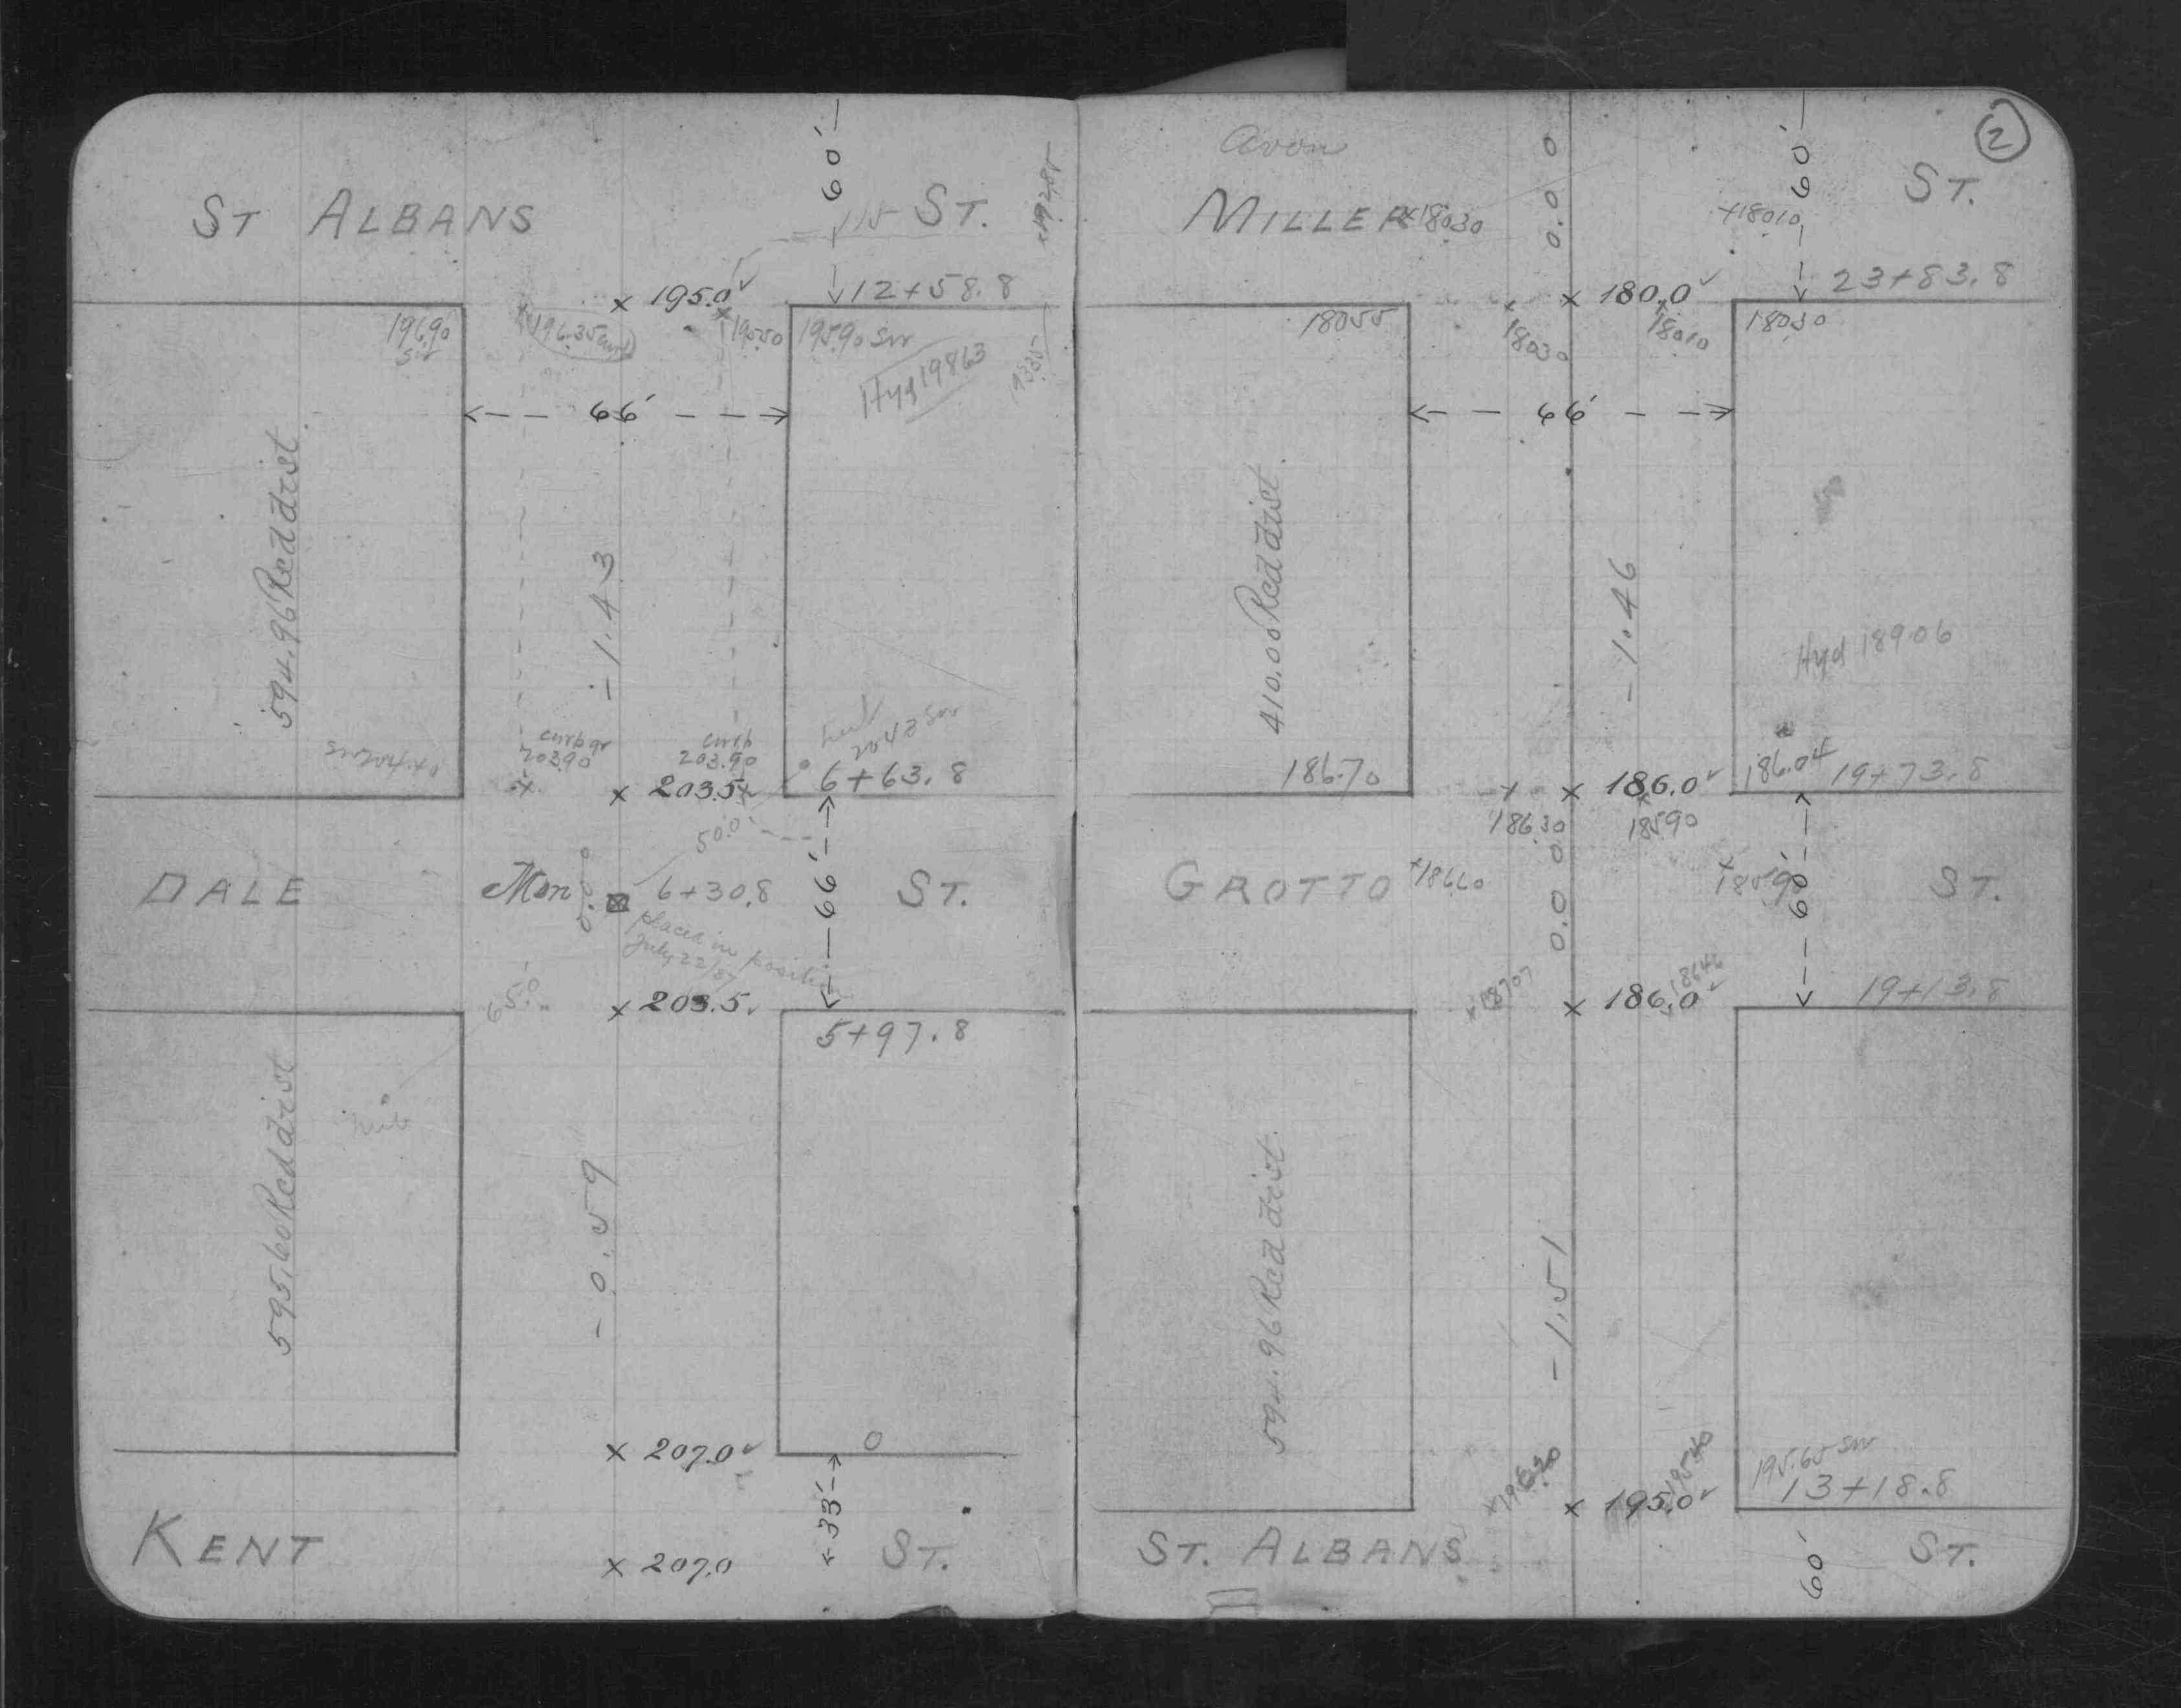 60'
ST ALBANS ST.
115
x19285
x 195.0 ✓
12+58.8
196.90
sw
196.35 curb
195.50
195.90 sw
Hyd 198.63
66'
594.96 Recd dist.
-1.43
curb gr
203.90
curb
203.90
hub
x 203.5
6+63.8
50.0
DALE
Mon
0.00
6+30.8
ST.
placed in position
July 22/87
66'
65.0
x 203.5 ✓
5+97.8
595.60 Recd dist
hub
-0.59
x 207.0 ✓
0
33'
KENT ST.
x 207.0
2
Avon
MILLER ST.
x18030
0.00
x18010
60'
x 180.0 ✓
23+83.8
18055
18030
18010
18030
66'
410.00 Recd dist.
-1.46
Hyd 189.06
186.70
x 186.0 ✓
186.04
19+73.8
186.30
185.90
GROTTO ST.
x18660
0.00
x18590
60'
x18707
x 186.0 ✓
18646
19+13.8
594.96 Recd dist.
-1.51
x19620
x19540
195.65 sw
x 195.0 ✓
13+18.8
ST. ALBANS ST.
60'